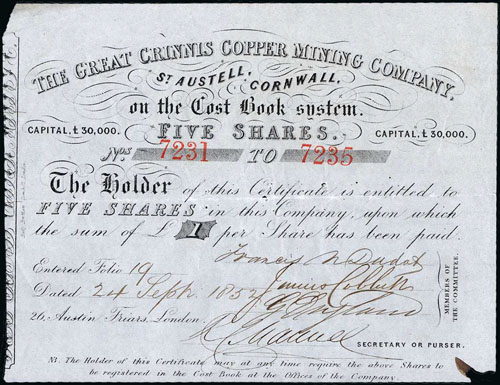 THE GREAT CRINNIS COPPER MINING COMPANY,
ST AUSTELL, CORNWALL,
on the Cost Book system.
CAPITAL, £30,000. FIVE SHARES. CAPITAL, £30,000.
Nos 7231 TO 7235
The Holder of this Certificate is entitled to
FIVE SHARES in this Company, upon which
the sum of £1 per Share has been paid.
Francis
Entered Folio 19
James
Dated 24 Sept. 1852
26, Austin Friars, London.
MEMBERS OF THE COMMITTEE.
SECRETARY OR PURSER.
N.B. The Holder of this Certificate may at any time require the above Shares to
be registered in the Cost Book at the Offices of the Company.